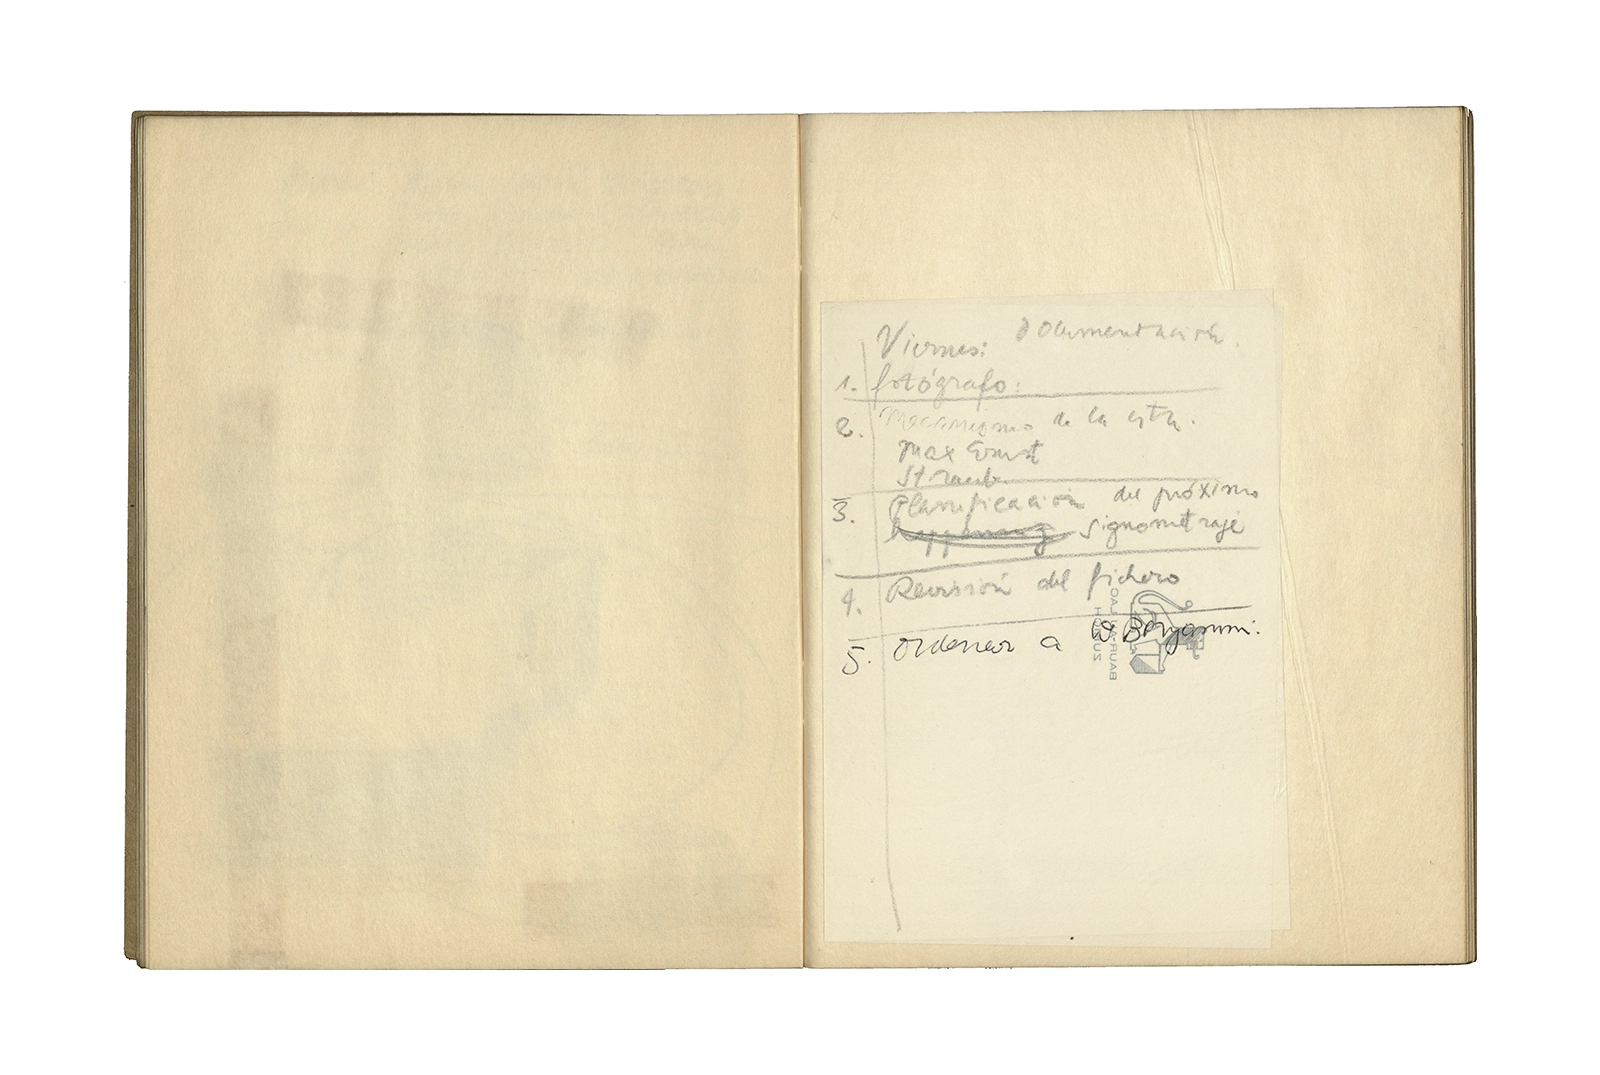 Viernes: documentación.
1. fotógrafo:
2. Mecanismo de la
Max Ernst
Straub.
3. Planificación del próximo
happening signometraje
4. Revisión del fichero
5. Ordenar a W Benjamin.